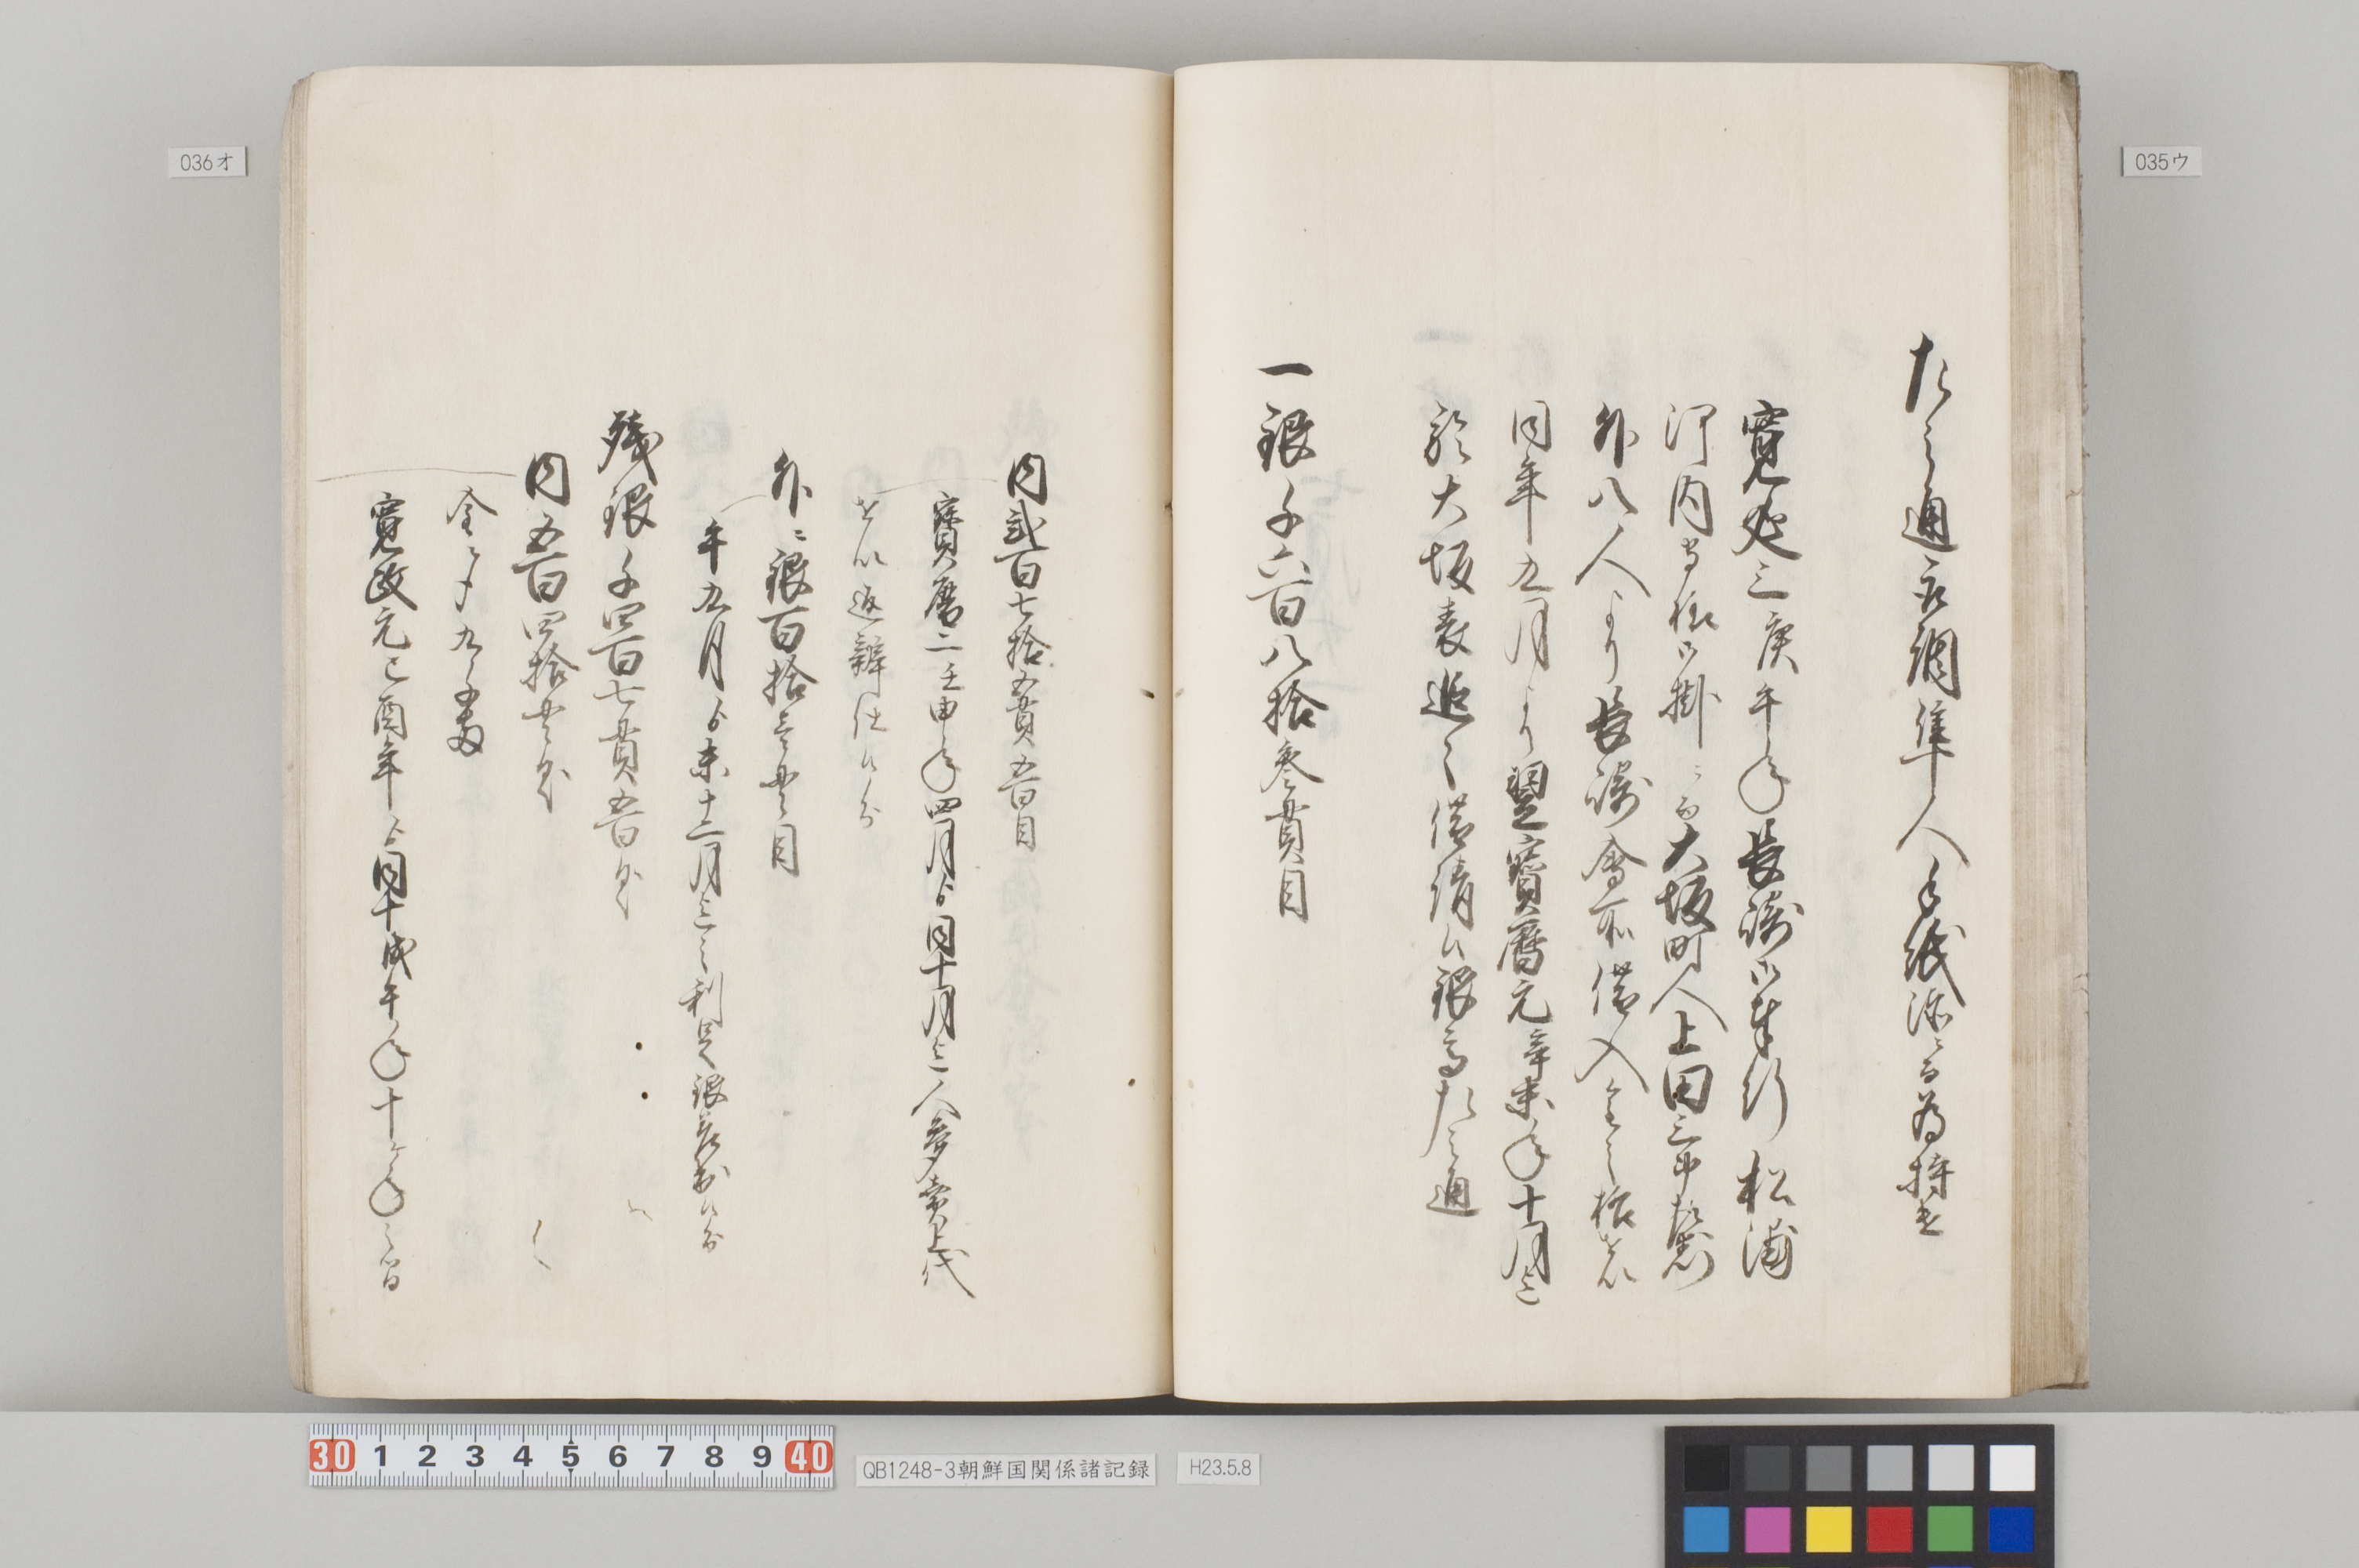 左之通被調隼人手紙添ニ而為持遣
寛延三庚午年長崎御奉行松浦
河内守様御掛ニ而大坂町人上田三郎左衛門
外八人より長崎會所借入金之振を以
同年九月より翌寶暦元辛未年十月迄
於大坂表追々借請候銀高左之通
一銀千六百八拾参貫目
内弐百七拾五貫五百目
寶暦二壬申年四月ゟ同十月迄人参売上代
を以返辨仕候分
外ニ銀百拾三貫目
午九月ゟ未十二月迄之利足銀差出候分
残銀千四百七貫五百目
内五百四拾貫目
金ニ〆九千両
寛政元己酉年ゟ同十戌午年十ヶ年之間
036オ
035ウ
30 1 2 3 4 5 6 7 8 9 40
QB1248-3朝鮮国関係諸記録
H23.5.8